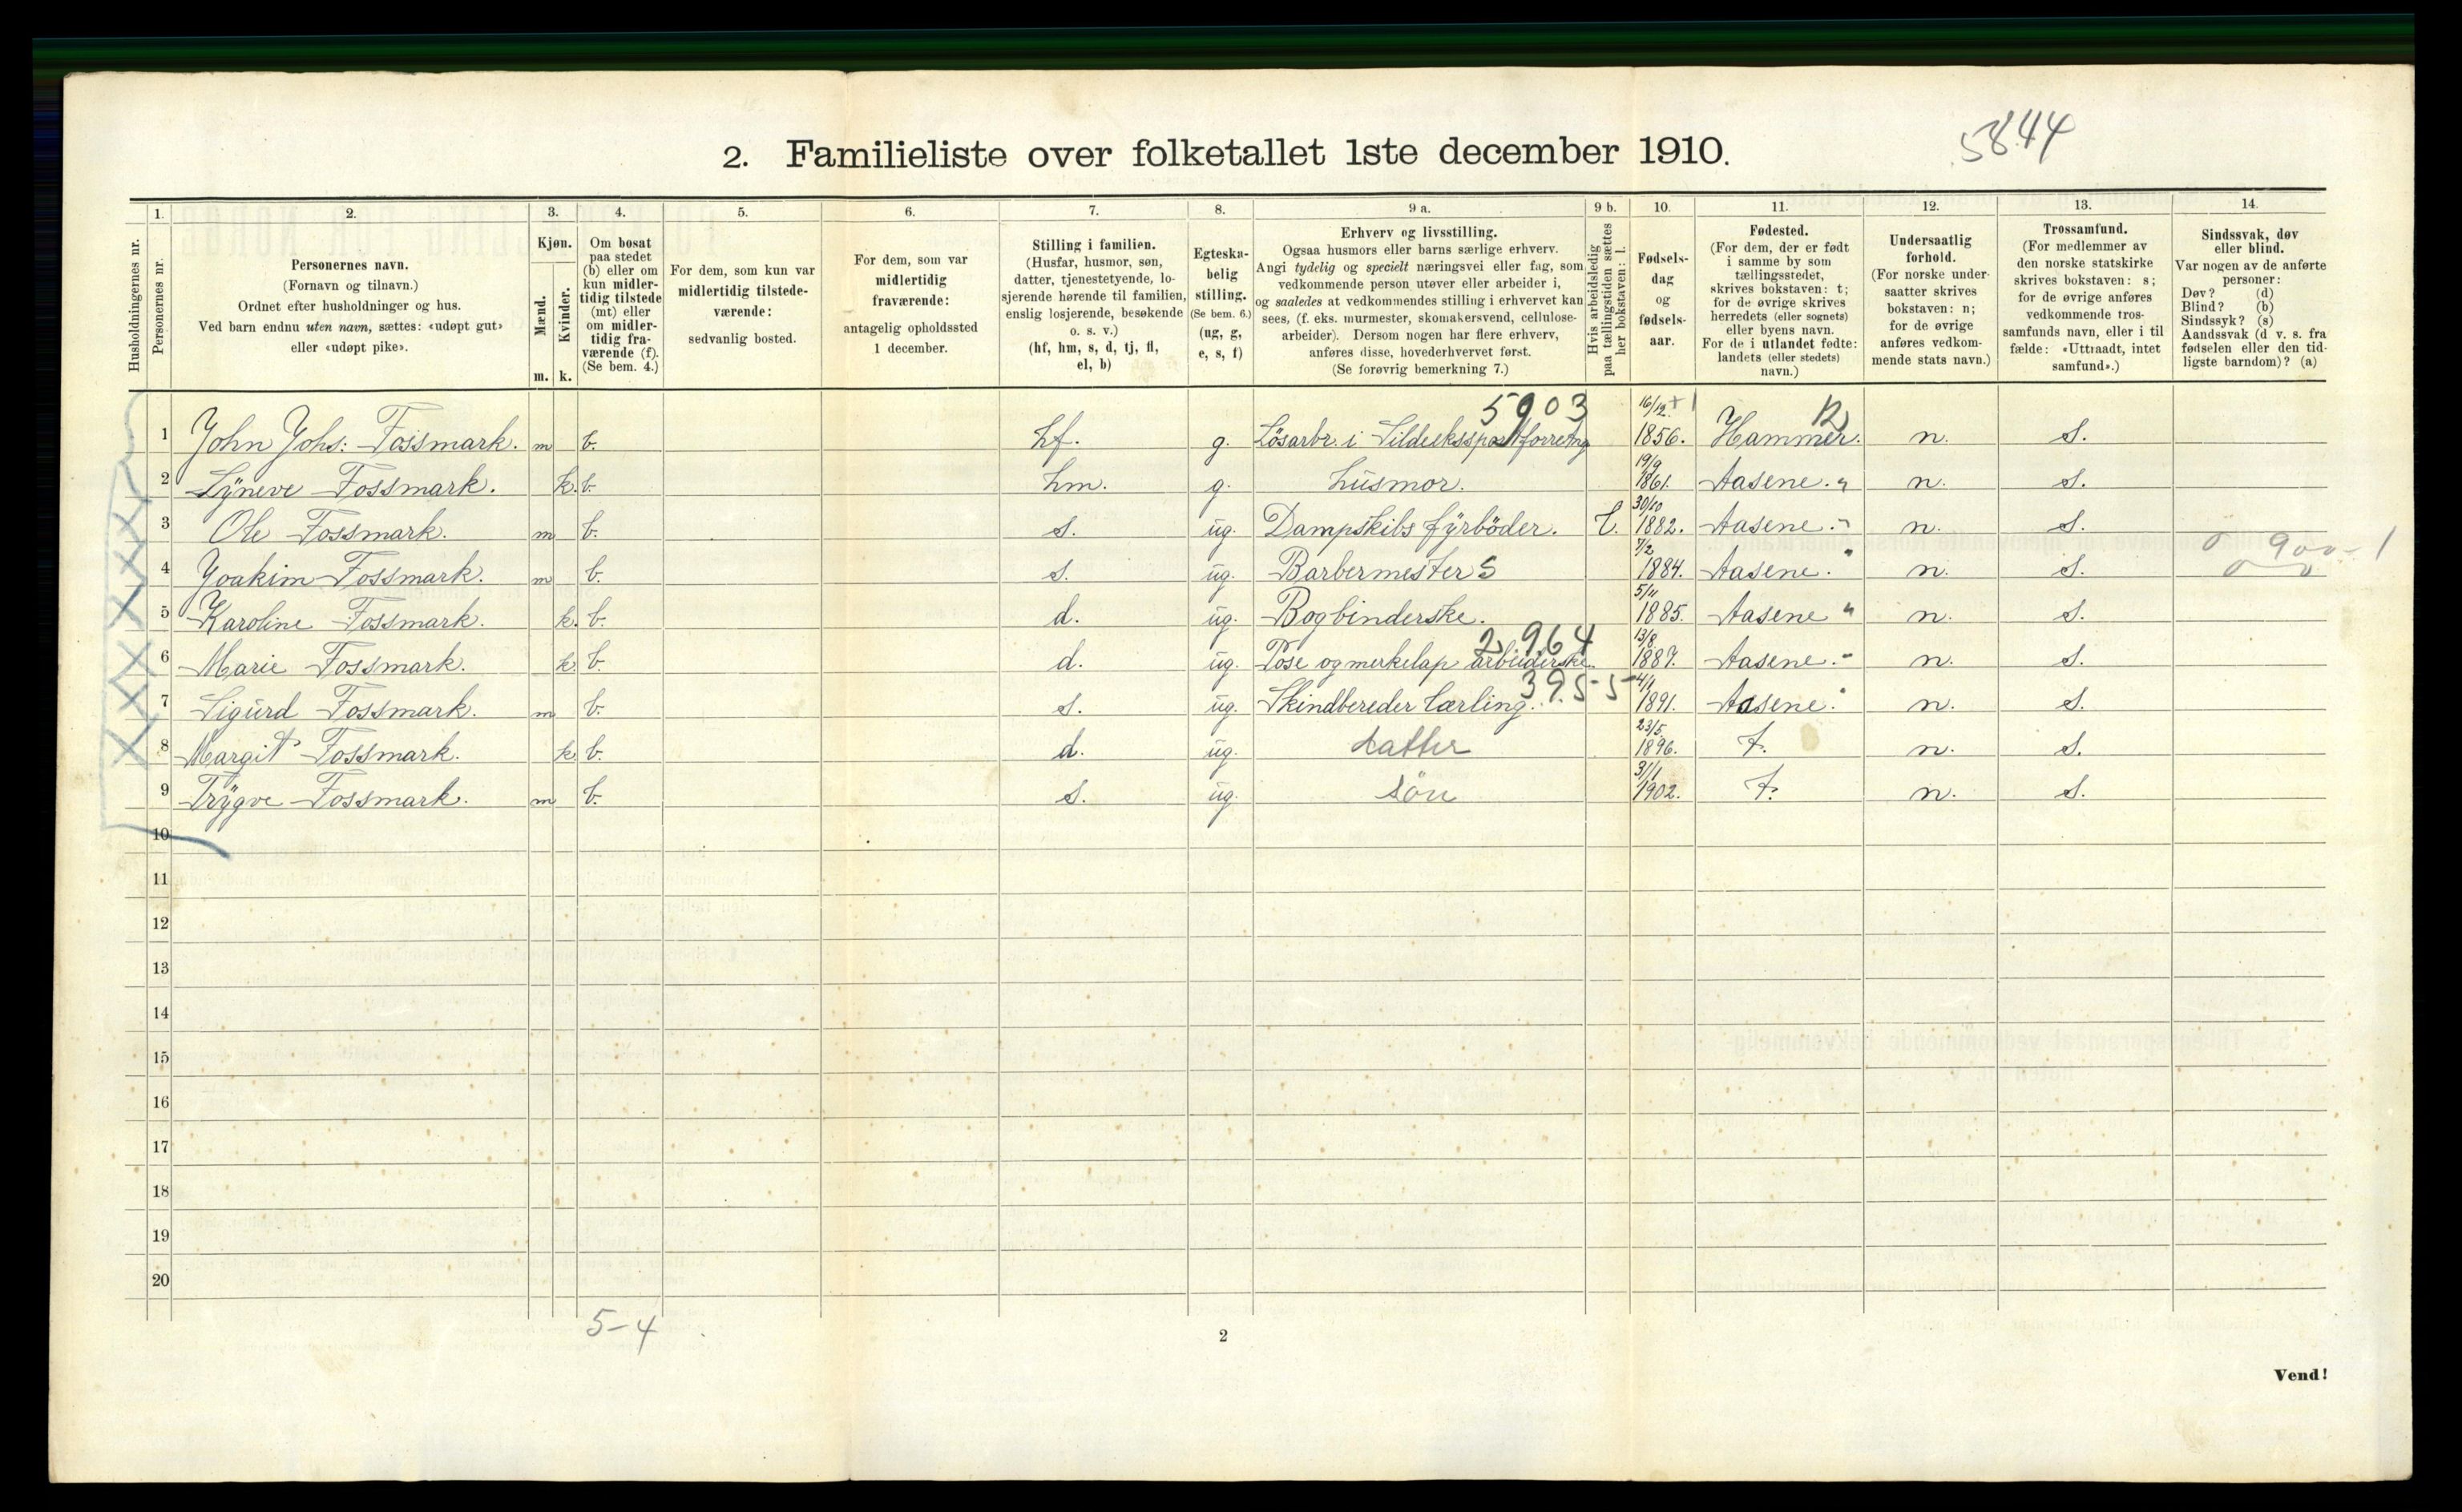 5844
2. Familieliste over folketallet 1ste december 1910.
Husholdningernes nr.
1. Personernes nr.
2. Personernes navn. (Fornavn og tilnavn.) Ordnet efter husholdninger og hus. Ved barn endnu uten navn, sættes: «udøpt gut» eller «udøpt pike».
3. Kjøn. Mænd. m. Kvinder. k.
4. Om bosat paa stedet (b) eller om kun midlertidig tilstede (mt) eller om midlertidig fraværende (f). (Se bem. 4.)
5. For dem, som kun var midlertidig tilstedeværende: sedvanlig bosted.
6. For dem, som var midlertidig fraværende: antagelig opholdssted 1 december.
7. Stilling i familien. (Husfar, husmor, søn, datter, tjenestetyende, losjerende hørende til familien, enslig losjerende, besøkende o. s. v.) (hf, hm, s, d, tj, fl, el, b)
8. Egteskabelig stilling. (Se bem. 6.) (ug, g, e, s, f)
9 a. Erhverv og livsstilling. Ogsaa husmors eller barns særlige erhverv. Angi tydelig og specielt næringsvei eller fag, som vedkommende person utøver eller arbeider i, og saaledes at vedkommendes stilling i erhvervet kan sees, (f. eks. murmester, skomakersvend, cellulosearbeider). Dersom nogen har flere erhverv, anføres disse, hovederhvervet først. (Se forøvrig bemerkning 7.)
9 b. Hvis arbeidsledig paa tællingstiden sættes her bokstaven: l.
10. Fødselsdag og fødselsaar.
11. Fødested. (For dem, der er født i samme by som tællingsstedet, skrives bokstaven: t; for de øvrige skrives herredets (eller sognets) eller byens navn. For de i utlandet fødte: landets (eller stedets) navn.)
12. Undersaatlig forhold. (For norske undersaatter skrives bokstaven: n; for de øvrige anføres vedkommende stats navn.)
13. Trossamfund. (For medlemmer av den norske statskirke skrives bokstaven: s; for de øvrige anføres vedkommende trossamfunds navn, eller i tilfælde: «Uttraadt, intet samfund».)
14. Sindssvak, døv eller blind. Var nogen av de anførte personer: Døv? (d) Blind? (b) Sindssyk? (s) Aandssvak (d. v. s. fra fødselen eller den tidligste barndom)? (a)
5903
1 John Johs: Fossmark. m b. hf. g. Lösarbr. i Sildeeksportforretng 16/12 1856. Hammer. n. s.
2 Syneve Fossmark. k. b. hm. g. husmor. 19/9 1861. Aasene. " n. s.
3 Ole Fossmark. m b. s. ug. Dampskibs fyrböder. l. 30/10 1882. Aasene. - n. s.
4 Joakim Fossmark. m b. s. ug. Barbermester S 7/2 1884. Aasene. " n. s. 900 - 1
5 Karoline Fossmark. k. b. d. ug. Bogbinderske. 5/11 1885. Aasene " n. s.
2964
6 Marie Fossmark. k. b. d. ug. Pose og merkelap arbeiderske. 13/8 1887. Aasene. - n. s.
3955
7 Sigurd Fossmark. m b. s. ug. Skindbereder Lærling. 4/1 1891. Aasene. " n. s.
8 Margit Fossmark. k. b. d. ug. datter 23/5 1896. t. n. s.
9 Trygve Fossmark. m b. s. ug. sön 31/1 1902. t. n. s.
10
11
12
13
14
15
16
17
18
19
20
5-4
2
Vend!